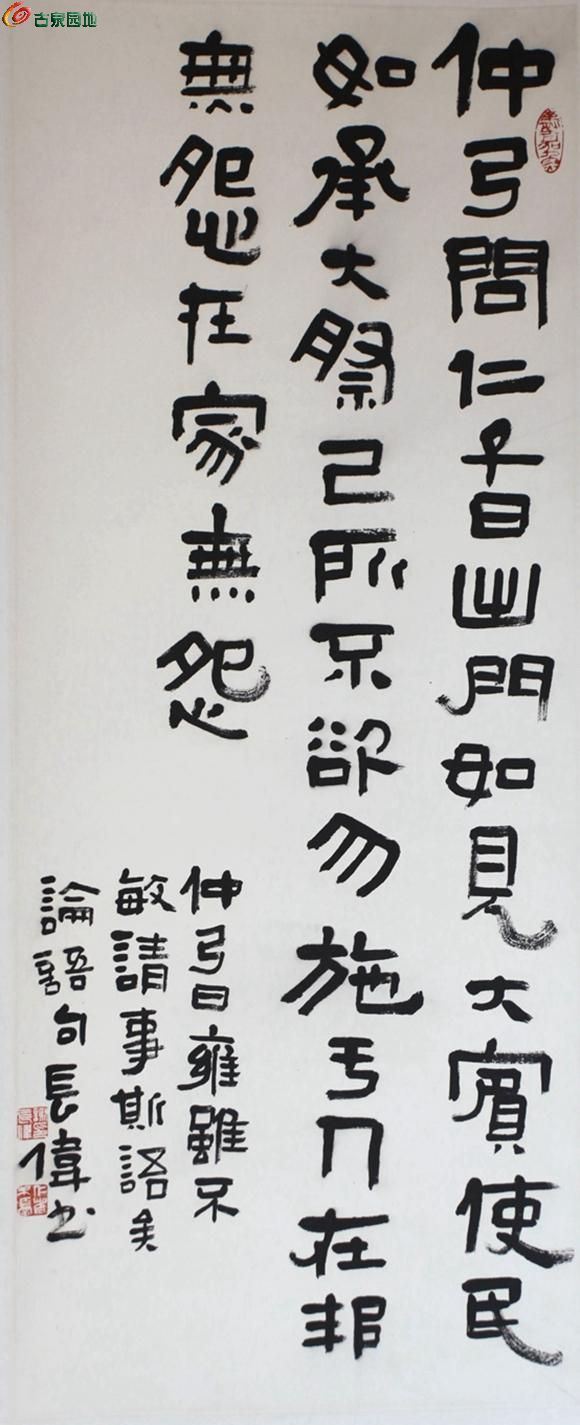 古泉园地
仲弓問仁子曰出門如見大賓使民
如承大祭己所不欲勿施于人在邦
無怨在家無怨
仲弓曰雍雖不
敏請事斯語矣
論語句長偉书